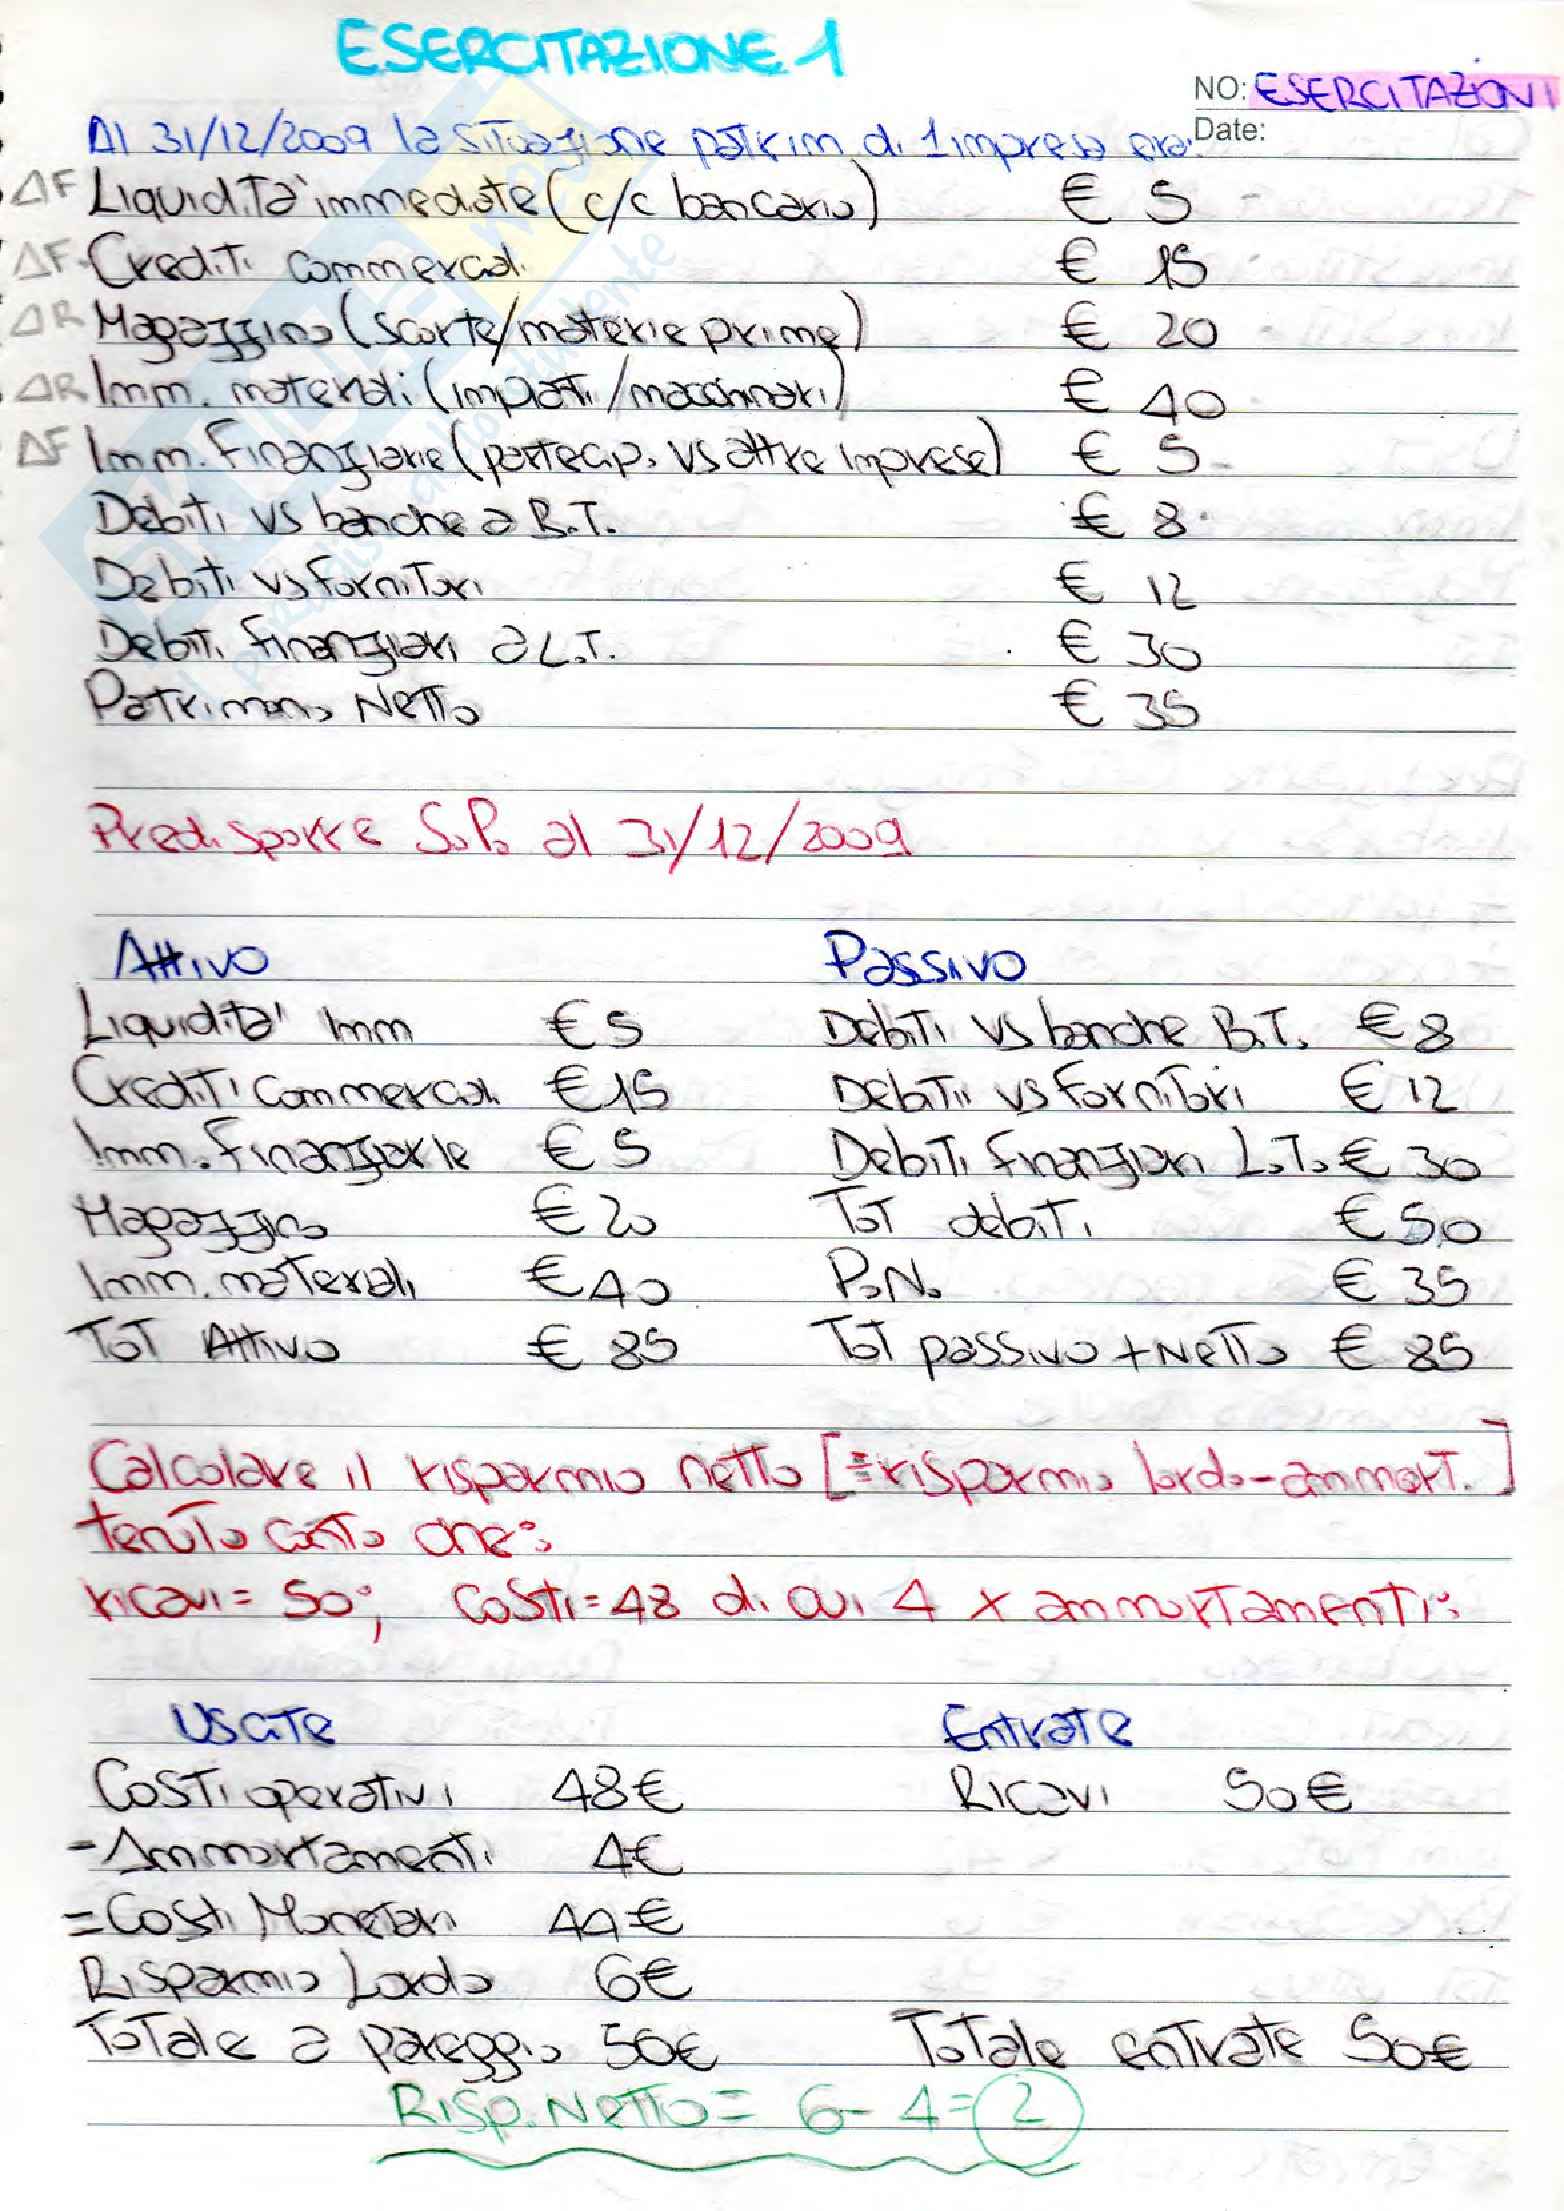 ESERCITAZIONE 1
NO: ESERCITAZIONI
Date:
Al 31/12/2009 la situazione patrim di 1 impresa era:
ΔF Liquidità immediate (c/c bancario) € 5
ΔF Crediti commerciali € 15
ΔR Magazzino (scorte/materie prime) € 20
ΔR Imm. materiali (impianti/macchinari) € 40
ΔF Imm. Finanziarie (partecip. vs altre imprese) € 5
Debiti vs banche a B.T. € 8
Debiti vs fornitori € 12
Debiti finanziari a L.T. € 30
Patrimonio Netto € 35
Predisporre S.P. al 31/12/2009
Attivo Passivo
Liquidità imm € 5 Debiti vs banche B.T. € 8
Crediti commerciali € 15 Debiti vs fornitori € 12
Imm. finanziarie € 5 Debiti finanziari L.T. € 30
Magazzino € 20 Tot debiti € 50
Imm. materiali € 40 P.N. € 35
Tot Attivo € 85 Tot passivo + Netto € 85
Calcolare il risparmio netto [=risparmio lordo-ammort.]
tenuto conto che:
ricavi = 50; costi = 48 di cui 4 x ammortamenti:
Uscite Entrate
Costi operativi 48€ Ricavi 50€
-Ammortamenti 4€
=Costi Monetari 44€
Risparmio Lordo 6€
Totale a pareggio 50€ Totale entrate 50€
Risp. Netto = 6-4=2